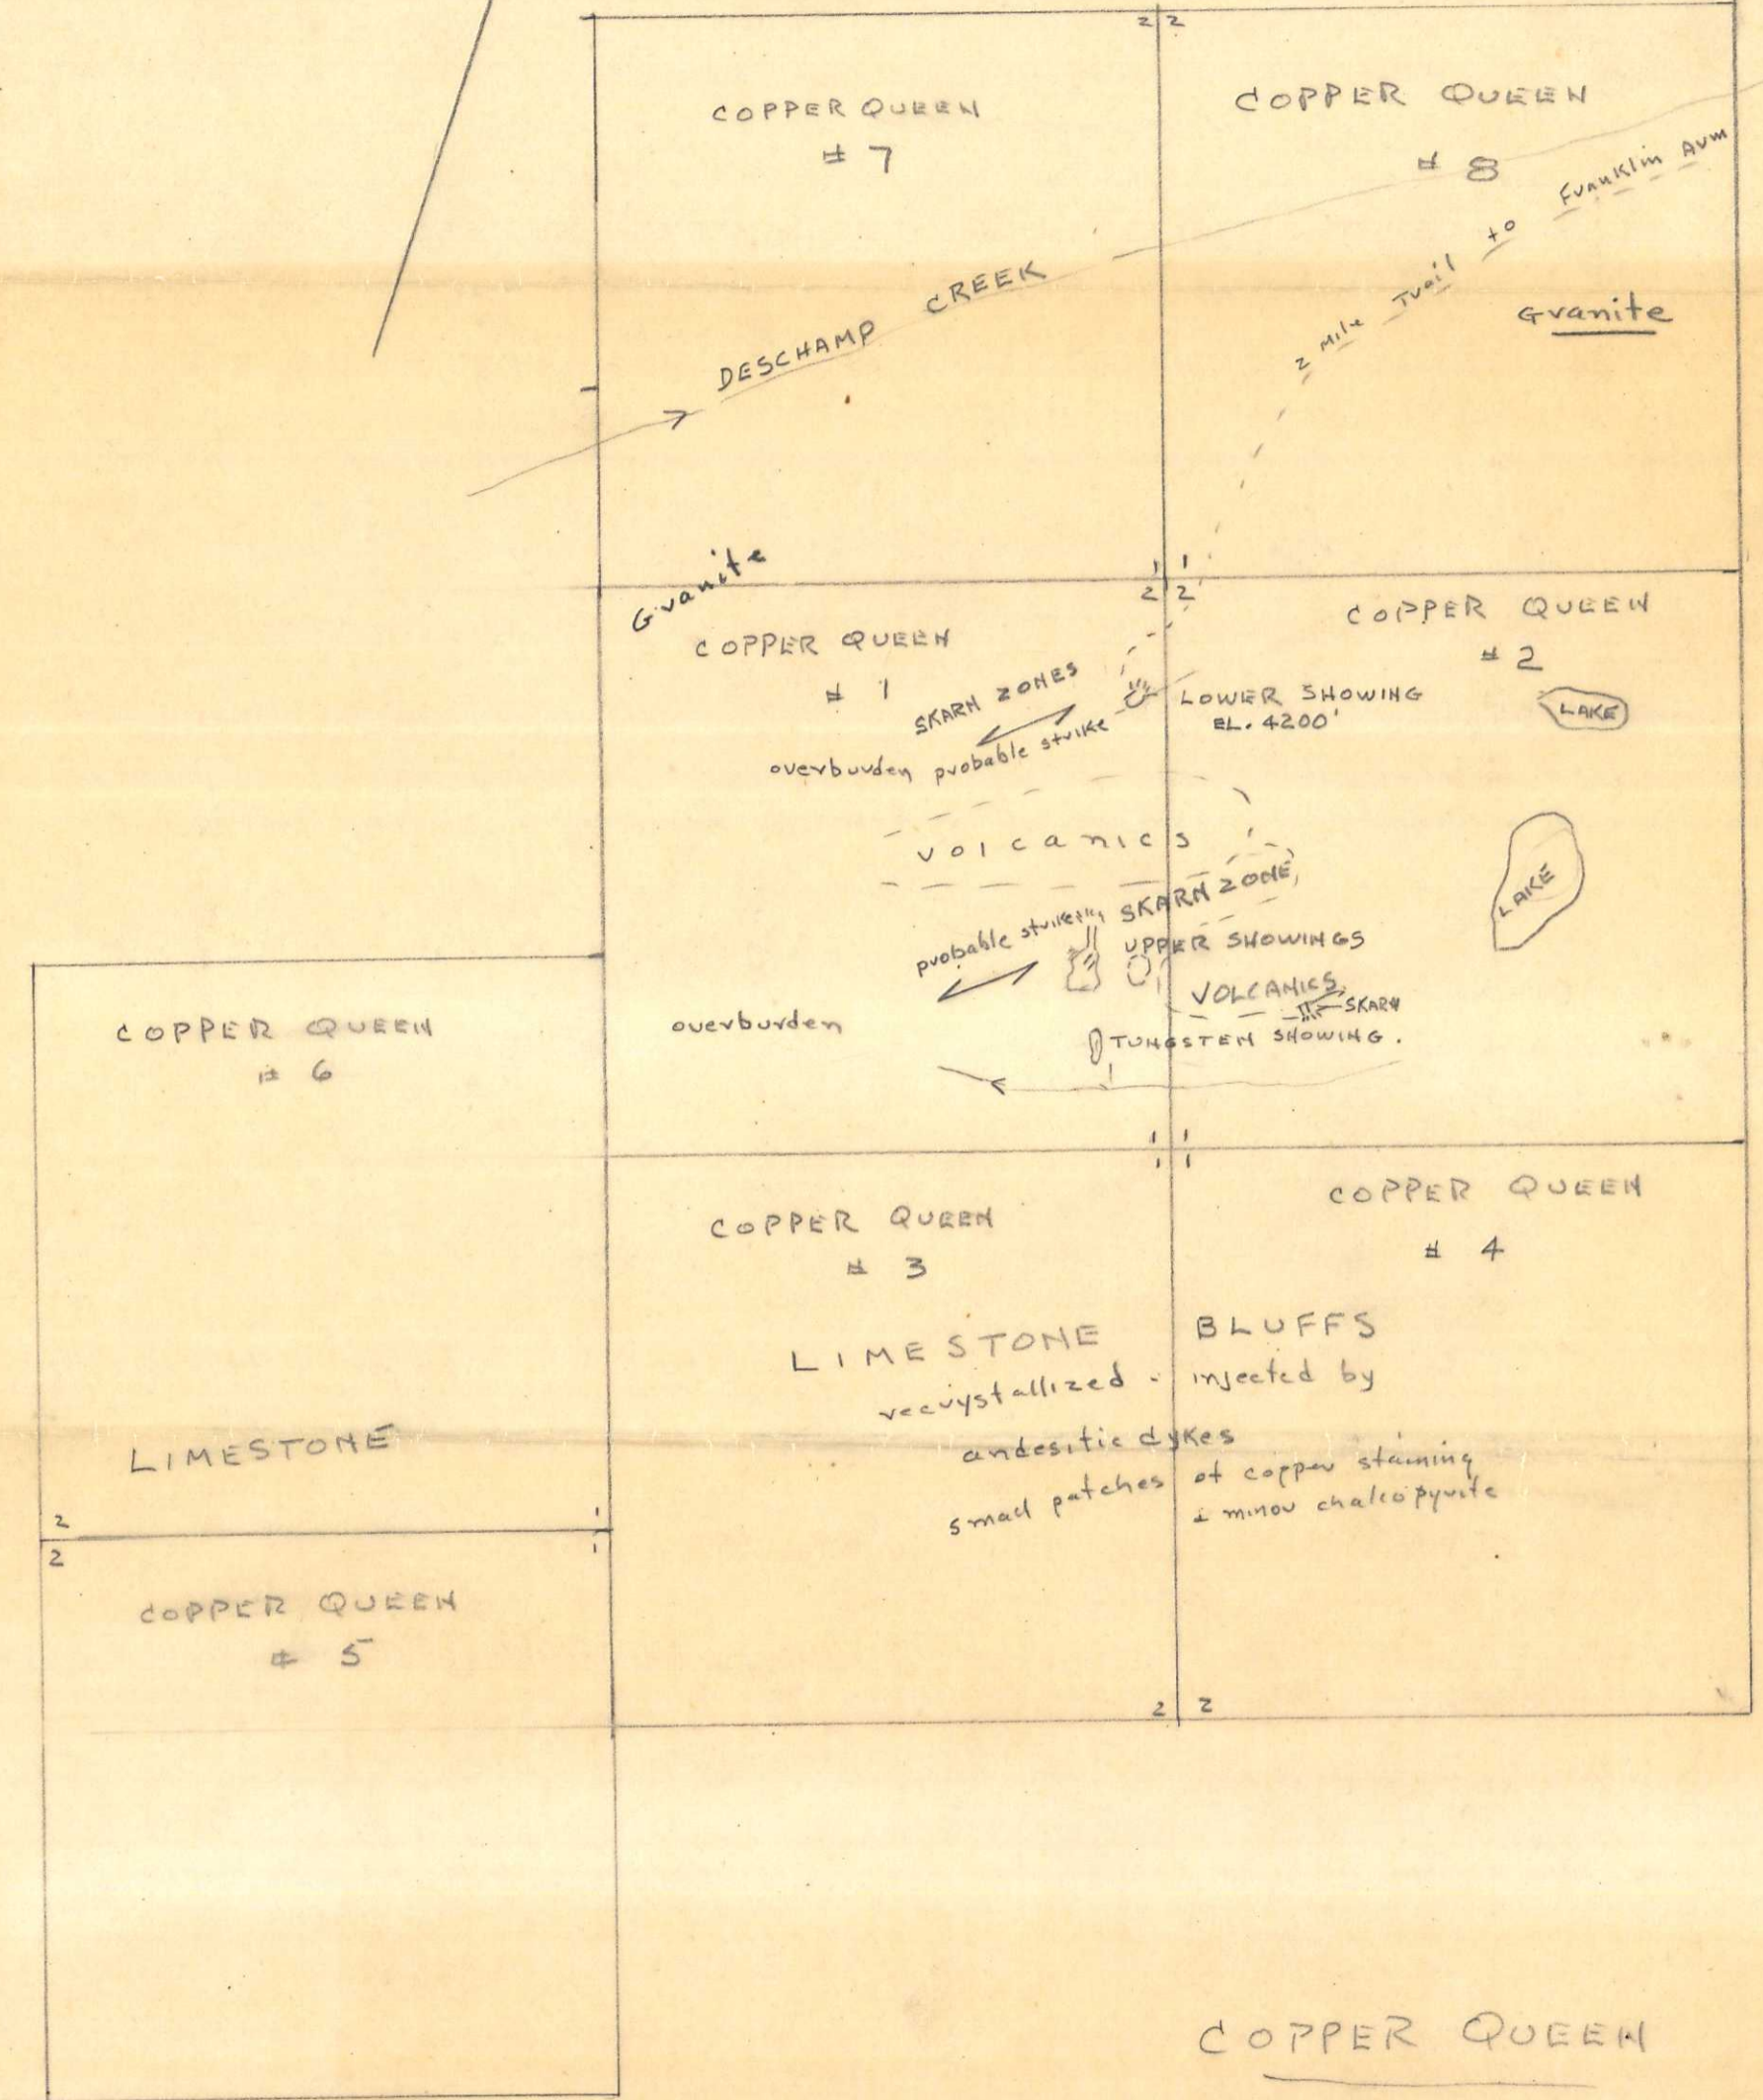 2 2
COPPER QUEEN
# 7
COPPER QUEEN
# 8
DESCHAMP CREEK
2 Mile Trail to Franklin Arm
Granite
Granite
1 1
2 2
COPPER QUEEN
# 1
COPPER QUEEN
# 2
SKARN ZONES
LOWER SHOWING
EL. 4200'
LAKE
overburden probable strike
volcanics
LAKE
SKARN ZONE
probable strike
UPPER SHOWINGS
VOLCANICS
SKARN
overburden
TUNGSTEN SHOWING.
COPPER QUEEN
# 6
1 1
1 1
COPPER QUEEN
# 3
COPPER QUEEN
# 4
LIMESTONE BLUFFS
recrystallized - injected by
andesitic dykes
small patches of copper staining
& minor chalcopyrite
LIMESTONE
2 1
2 1
COPPER QUEEN
# 5
2 2
COPPER QUEEN